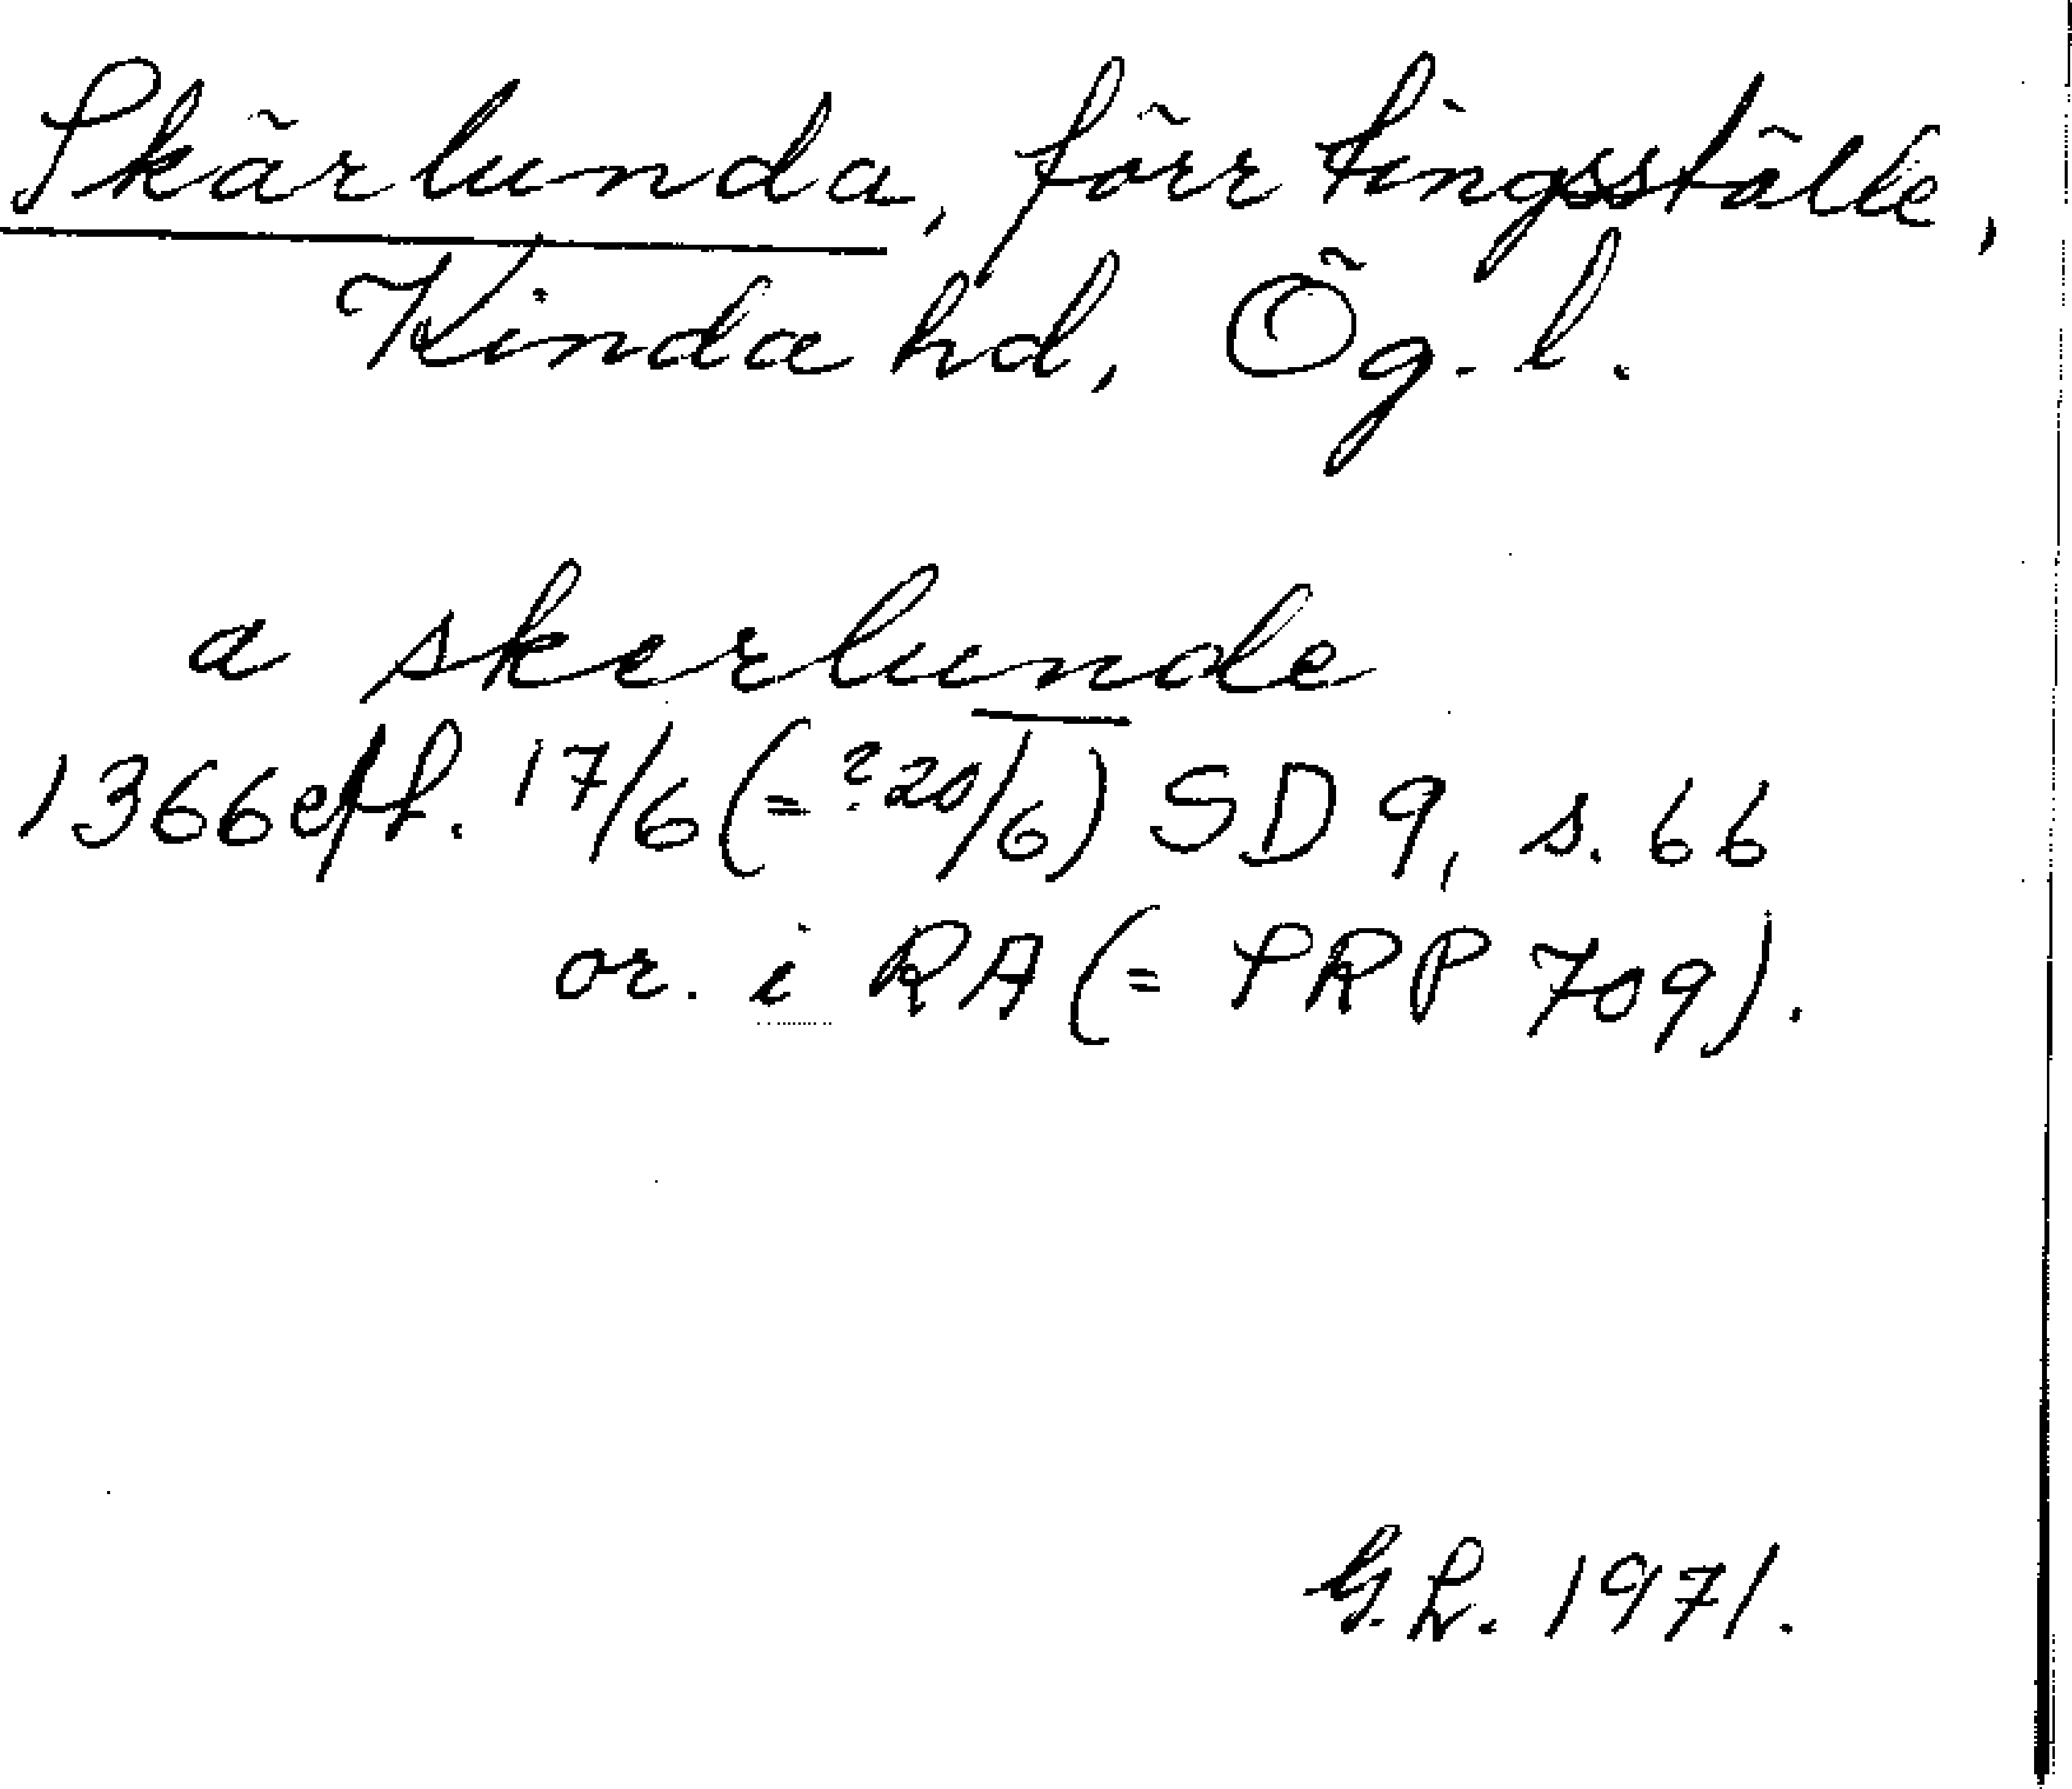 Skärlunda, förr tingsställe,
Kinda hd, Ög. l.
a skerlunde
1366 eft. 17/6 (= ?20/6) SD 9, s. 66
or. i RA (= SRP 709).
G.L. 1971.